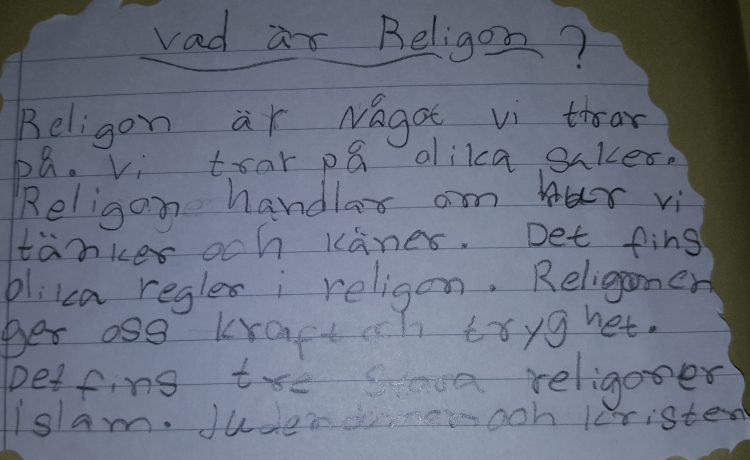 Vad är Religon ?
Religon är Något vi trrar
på. Vi trrar på olika saker.
Religon handlar om hur vi
tänker och käner. Det fins
olika regler i religon. Religonen
ger oss kraft och tryghet.
Det fins tre stora religoner
islam. Judendomen och kristen